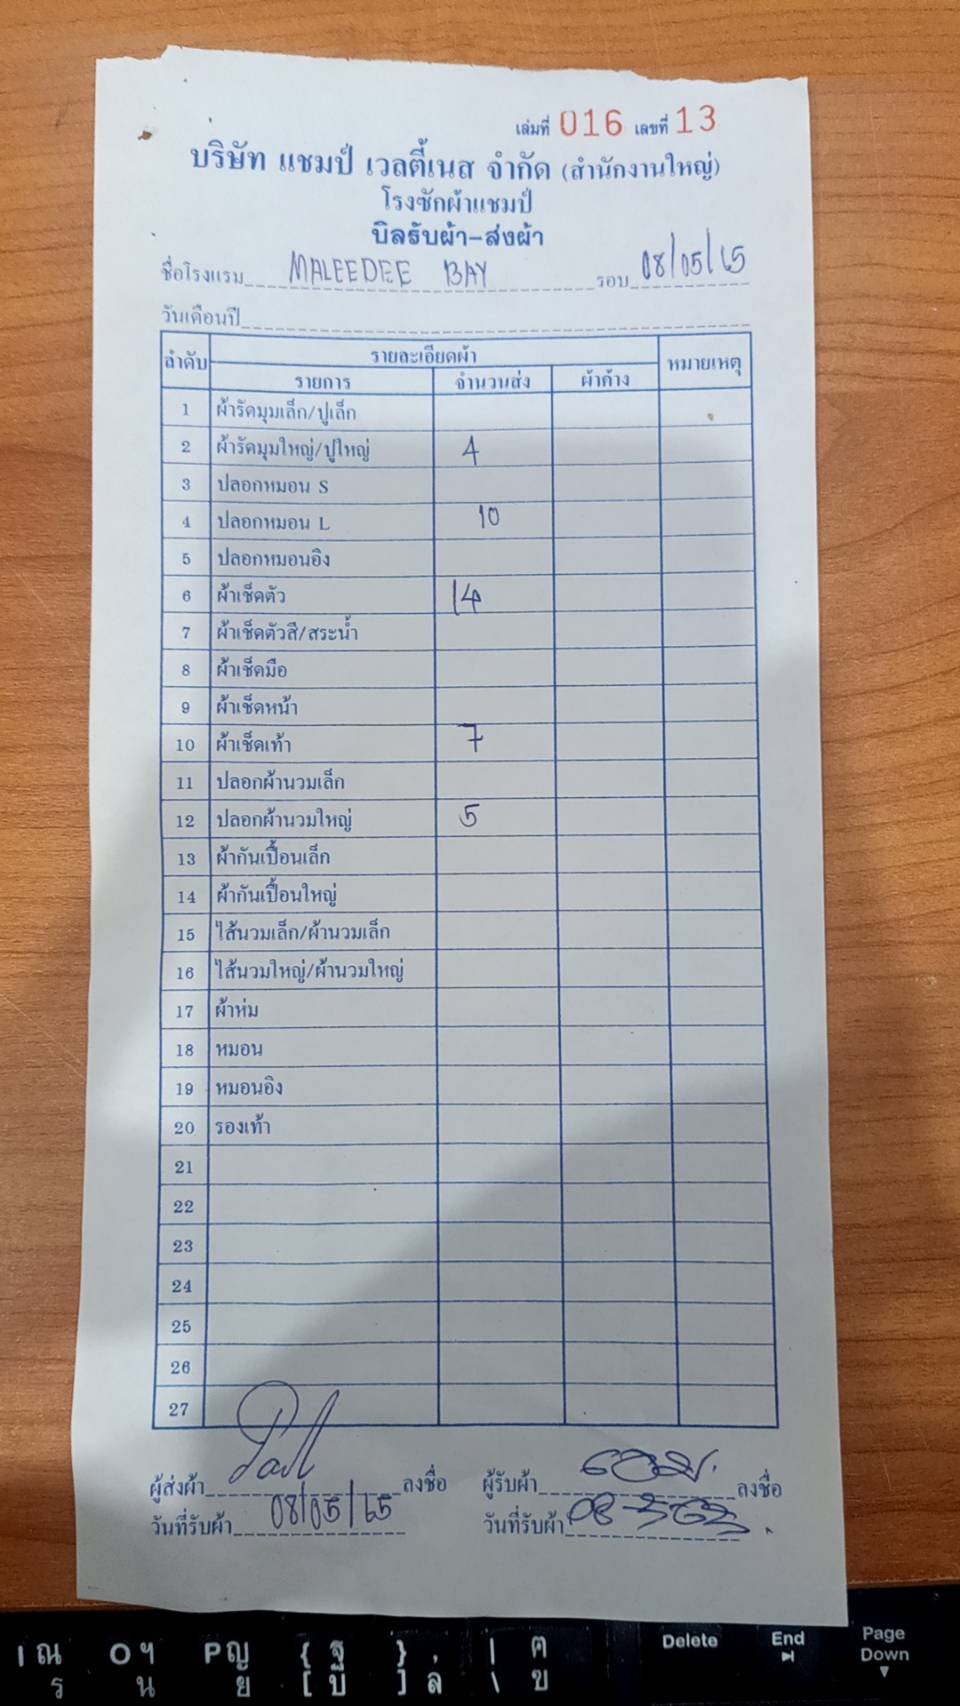 เล่มที่ 016 เลขที่ 13
บริษัท แชมป์ เวลตี้เนส จำกัด (สำนักงานใหญ่)
โรงซักผ้าแชมป์
บิลรับผ้า-ส่งผ้า
ชื่อโรงแรม MALEEDEE BAY รอบ 08/05/65
วันเดือนปี
ลำดับ รายละเอียดผ้า หมายเหตุ
รายการ จำนวนส่ง ผ้าค้าง
1 ผ้ารัดมุมเล็ก/ปูเล็ก
2 ผ้ารัดมุมใหญ่/ปูใหญ่ 4
3 ปลอกหมอน S
4 ปลอกหมอน L 10
5 ปลอกหมอนอิง
6 ผ้าเช็ดตัว 14
7 ผ้าเช็ดตัวสี/สระน้ำ
8 ผ้าเช็ดมือ
9 ผ้าเช็ดหน้า
10 ผ้าเช็ดเท้า 7
11 ปลอกผ้านวมเล็ก
12 ปลอกผ้านวมใหญ่ 5
13 ผ้ากันเปื้อนเล็ก
14 ผ้ากันเปื้อนใหญ่
15 ไส้นวมเล็ก/ผ้านวมเล็ก
16 ไส้นวมใหญ่/ผ้านวมใหญ่
17 ผ้าห่ม
18 หมอน
19 หมอนอิง
20 รองเท้า
21
22
23
24
25
26
27
ผู้ส่งผ้า ลงชื่อ ผู้รับผ้า ลงชื่อ
วันที่รับผ้า 08/05/65 วันที่รับผ้า
Delete End Page Down